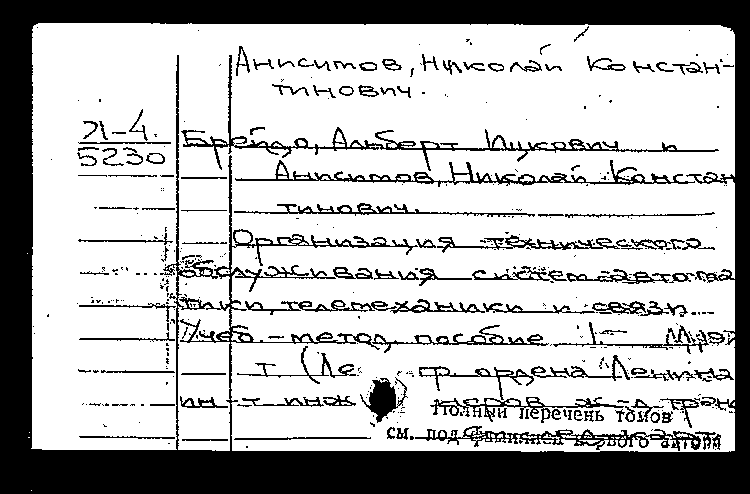 Анисимов, Николай Констан-
тинович.
Л-4.
5230
Брейдо, Альберт Ицкович и
Анисимов, Николай Констан
тинович.
Организация технического
обслуживания систем автома
тики, телемеханики и связи.
Учеб.-метод. пособие 1-
т (Ле гр. ордена Ленина
ин-т инж ж.-д. тран
Полный перечень томов
см. под фамилией первого автора